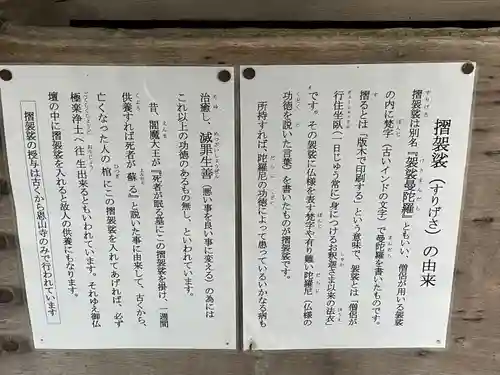 摺袈裟(すりげさ)の由来
摺袈裟は別名『袈裟曼陀羅』ともいい、僧侶が用いる袈裟
の内に梵字(古いインドの文字)で曼陀羅を書いたものです。
摺るとは「版木で印刷する」という意味で、袈裟とは「僧侶が
行住坐臥(一日じゅう常に)身につけるお釈迦さま以来の法衣」
です。その袈裟に仏様を表す梵字や有り難い陀羅尼(仏様の
功徳を説いた言葉)を書いたものが摺袈裟です。
所持すれば、陀羅尼の功徳によって患っているいかなる病も
治癒し、滅罪生善(悪い事を良い事に変える)の為には
これ以上の功徳のあるもの無し、といわれています。
昔、閻魔大王が『死者が眠る墓にこの摺袈裟を掛け、一週間
供養すれば死者が蘇る』と説いた事に由来して、古くから、
亡くなった人の棺にこの摺袈裟を入れてあげれば、必ず
極楽浄土へ往生出来るともいわれています。それゆえ御仏
壇の中に摺袈裟を入れると故人の供養にもなります。
摺袈裟の授与は古くから恩山寺のみで行われています